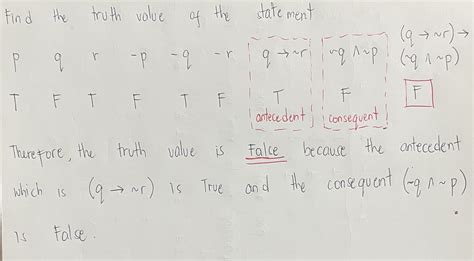 Find the truth value of the statement
p q r ~p ~q ~r q → ~r ~q ∧ ~p (q → ~r) → (~q ∧ ~p)
T F T F T F T F F
antecedent consequent
Therefore, the truth value is False because the antecedent
which is (q → ~r) is True and the consequent (~q ∧ ~p)
is False.